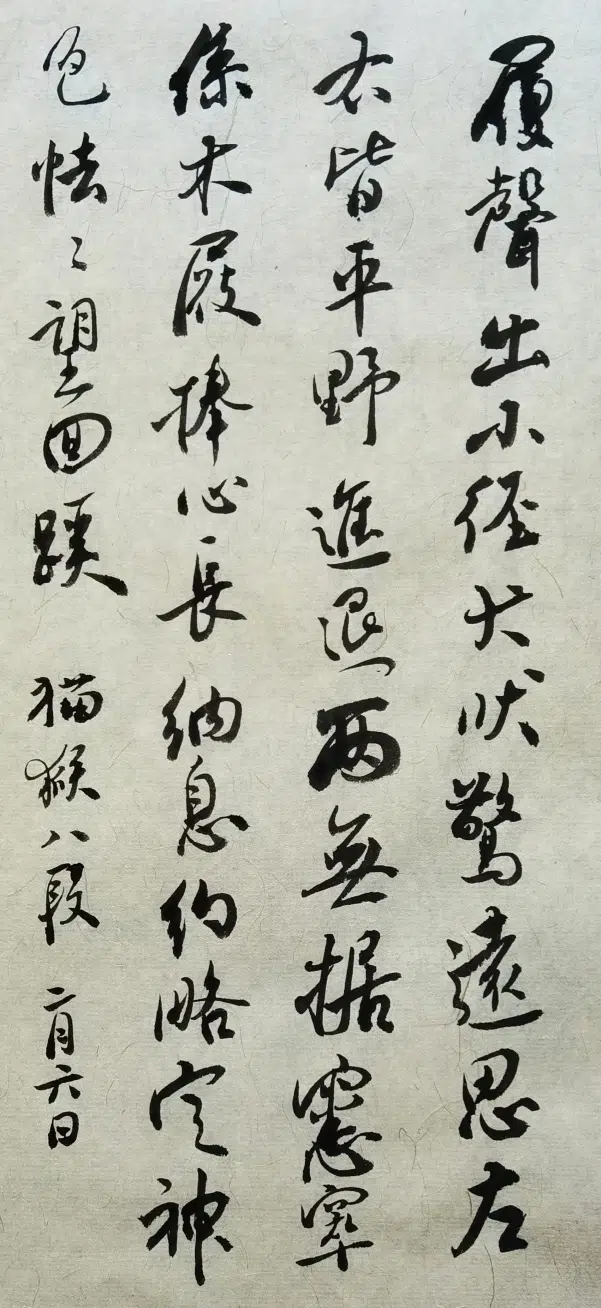 履聲出小徑犬吠驚遠思左
右皆平野進退兩無據窸窣
係木屐捧心長納息約略定神
色怯々望回蹊 猫猴八段 二月六日